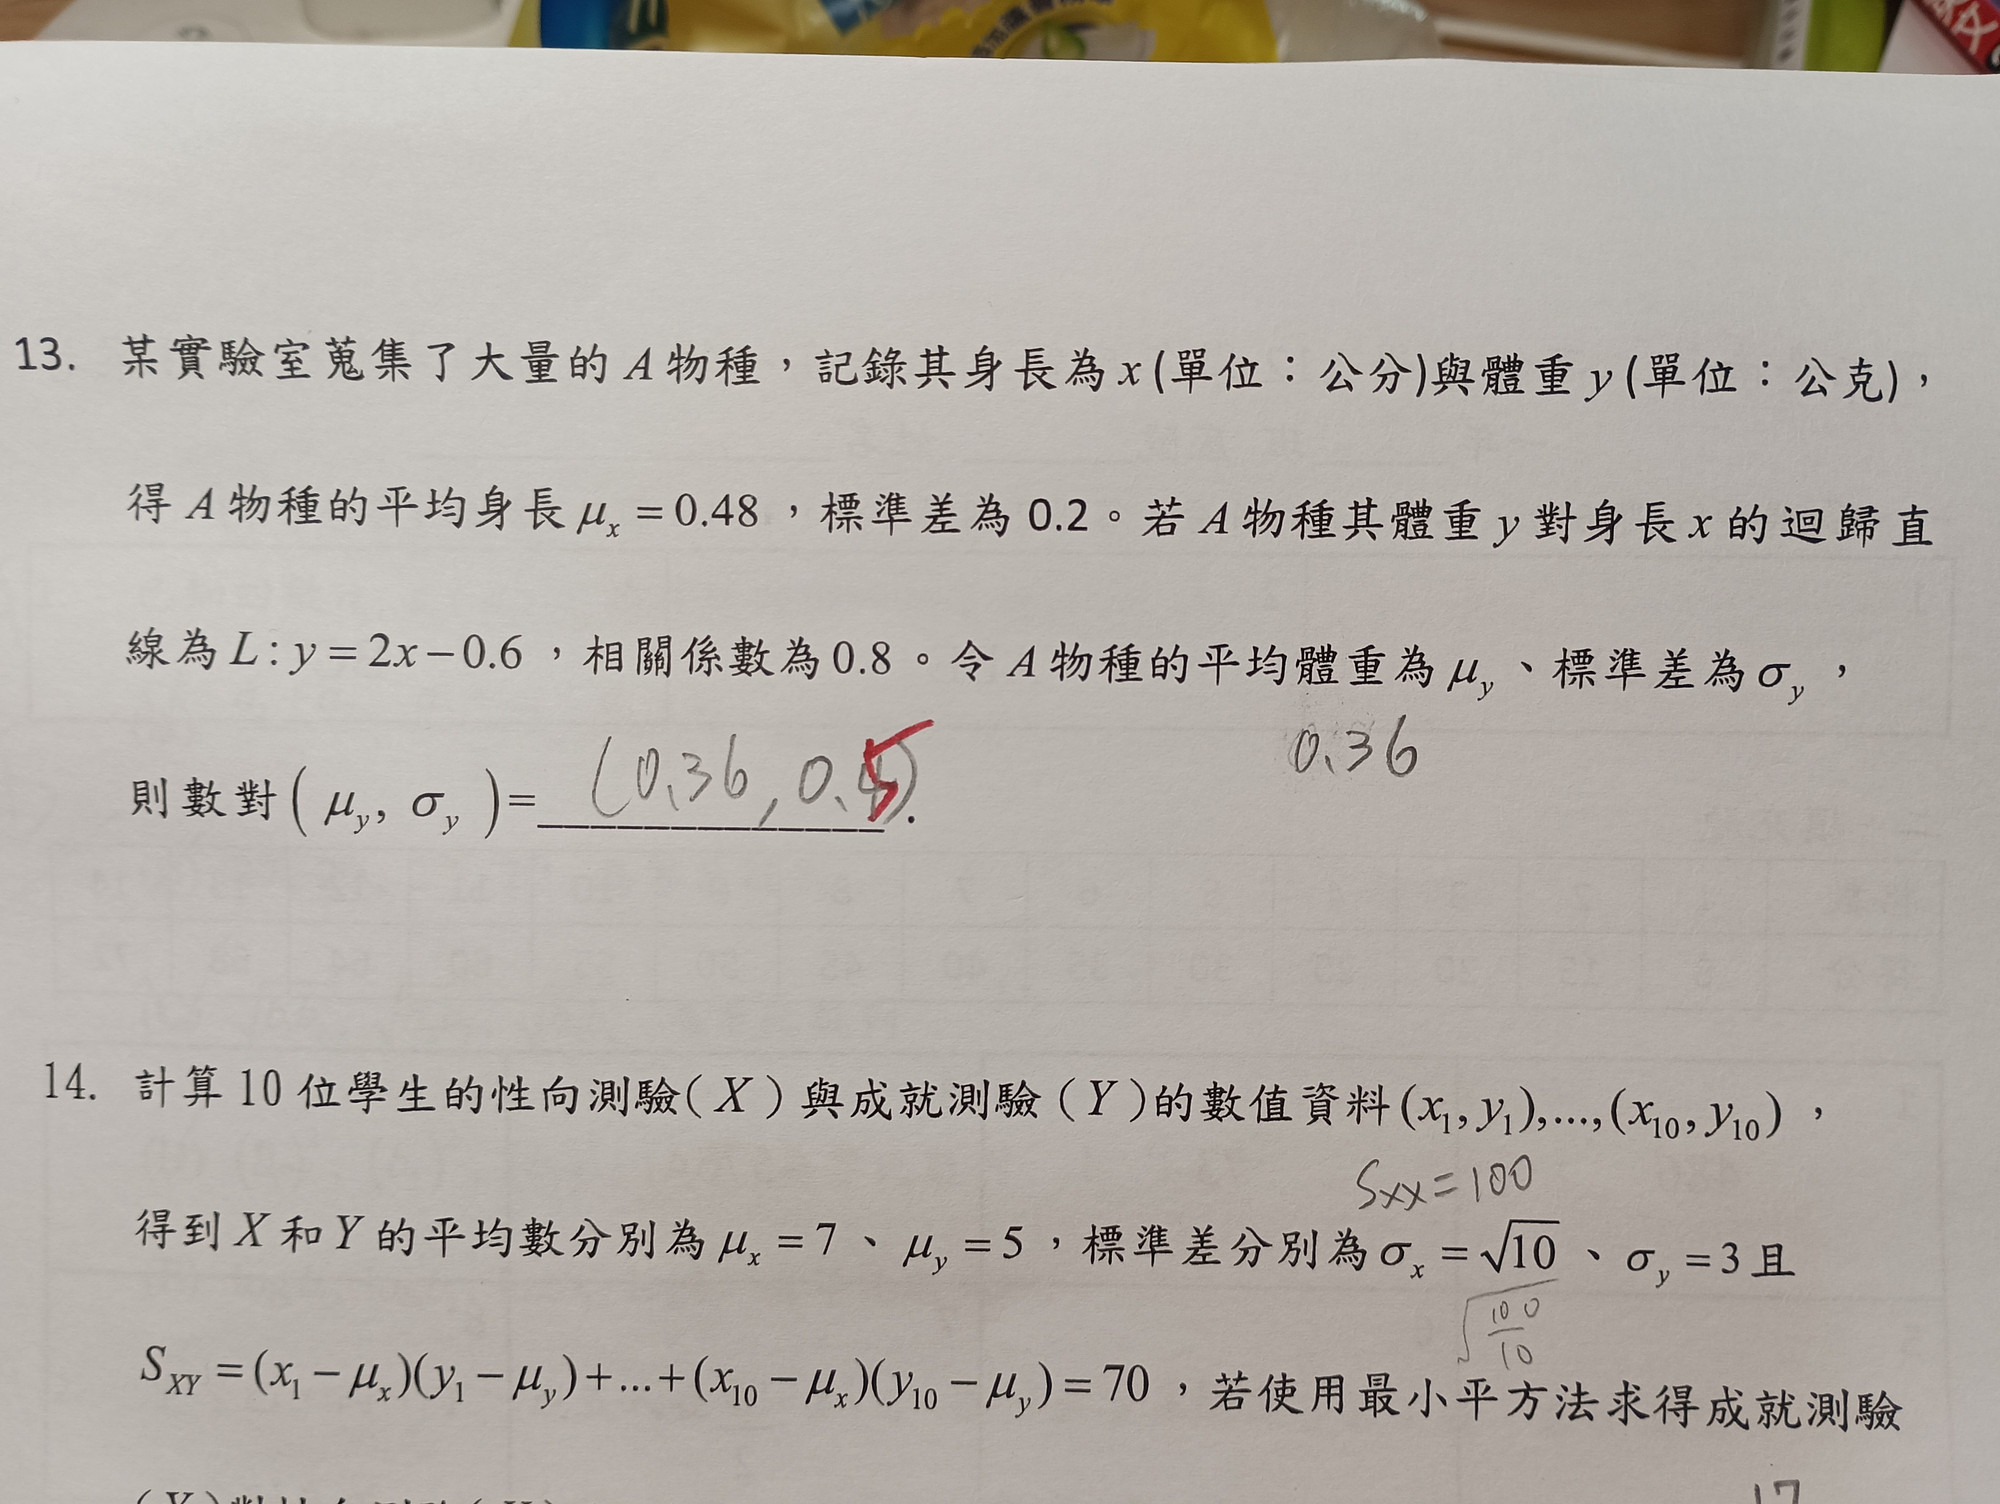 13. 某實驗室蒐集了大量的 A 物種，記錄其身長為 x (單位：公分)與體重 y (單位：公克)，
得 A 物種的平均身長 μₓ = 0.48 ，標準差為 0.2。若 A 物種其體重 y 對身長 x 的迴歸直
線為 L : y = 2x − 0.6 ，相關係數為 0.8 。令 A 物種的平均體重為 μ_y 、標準差為 σ_y ，
0.36
則數對 ( μ_y, σ_y ) = (0.36, 0.5) .
14. 計算 10 位學生的性向測驗( X ) 與成就測驗 ( Y )的數值資料 (x₁, y₁),...,(x₁₀, y₁₀) ，
Sxx = 100
得到 X 和 Y 的平均數分別為 μₓ = 7 、 μ_y = 5 ，標準差分別為 σₓ = √10 、 σ_y = 3 且
√(100/10)
S_XY = (x₁ − μₓ)(y₁ − μ_y) + ... + (x₁₀ − μₓ)(y₁₀ − μ_y) = 70 ，若使用最小平方法求得成就測驗
17